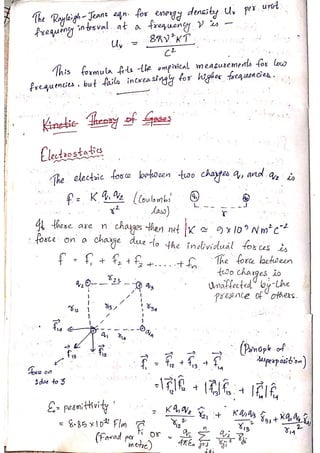 The Rayleigh-Jeans eqn. for energy density Uν per unit
frequency interval at a frequency ν is —
Uν = 8πν²KT
C²
This formula fits the empirical measurements for low
frequencies, but fails increasingly for higher frequencies.
Kinetic Theory of Gases
Electrostatics
The electric force between two charges q₁ and q₂ is
f = K q₁ q₂ / r² (Coulombs' law)
q₁ q₂
r
K ≈ 9 × 10⁹ Nm² C⁻²
If there are n charges then net
force on a charge due to the individual forces is
f = f₁ + f₂ + f₃ + ..... + fn
The force between
two charges is
Unaffected by the
presence of others.
q₂ r₂₃ q₃
r₁₂ r₁₃
f₁₄ q₁ r₁₄ q₄
f₁₃ f₁₂
Force on
1 due to 3
(Principle of
superposition)
f₁ = f₁₂ + f₁₃ + f₁₄
= |f₁₂| r̂₁₂ + |f₁₃| r̂₁₃ + |f₁₄| r̂₁₄
= K q₁ q₂ / r₁₂² r̂₂₁ + K q₁ q₃ / r₁₃² r̂₃₁ + K q₁ q₄ / r₁₄²
ε₀ = permittivity
= 8.85 × 10⁻¹² F/m
(Farad per metre)
or f₁ = q₁ / 4πε₀